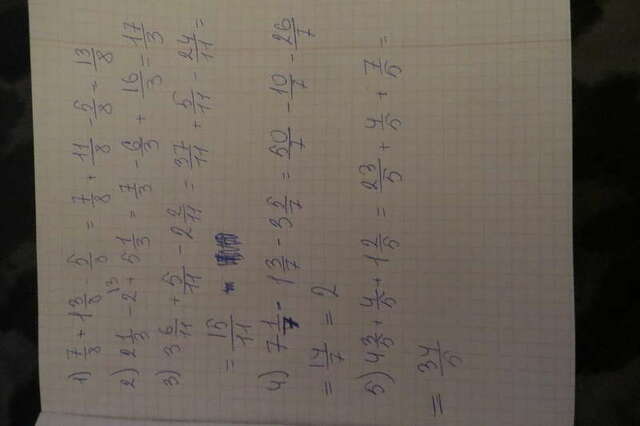 1) 7/8 + 1 3/8 - 5/8 = 7/8 + 11/8 - 5/8 = 13/8
13
2) 2 1/3 - 2 + 5 1/3 = 7/3 - 6/3 + 16/3 = 17/3
3) 3 6/11 + 5/11 - 2 2/11 = 37/11 + 5/11 - 24/11 =
= 15/11
4) 7 1/7 - 1 3/7 - 3 5/7 = 50/7 - 10/7 - 26/7
= 14/7 = 2
5) 4 3/5 + 4/5 + 1 2/5 = 23/5 + 4/5 + 7/5 =
= 34/5